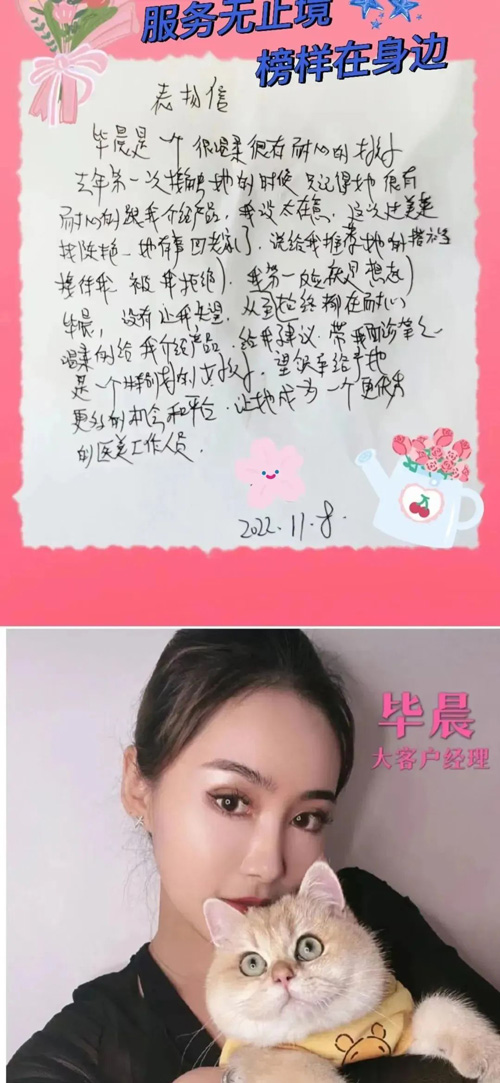 服务无止境
榜样在身边
表扬信
毕晨是一个很温柔很有耐心的女孩
去年第一次接触她的时候只记得她很有
耐心的跟我介绍产品，我没太在意，这次过来是
她有事回老家了，说给我推荐她的
被我拒绝），我第一反应就是想找
毕晨，没有让我失望，从到始终都在耐心
温柔的给我介绍产品，给我建议，带我面诊等等
是一个特别好的女孩，望领导给予她
更多的机会和平台，让她成为一个更优秀
的医美工作人员．
2022.11.8.
毕晨
大客户经理